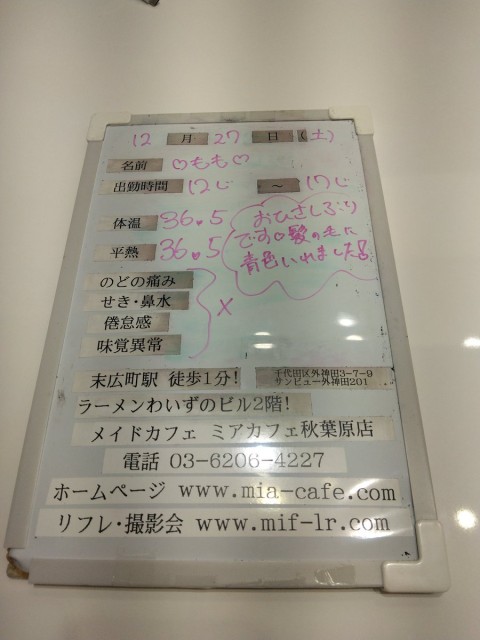 12 月 27 日 (土)
名前 ♡もも♡
出勤時間 12じ ～ 17じ
体温 36.5
平熱 36.5
おひさしぶり
です♡髪の毛に
青色いれました
のどの痛み
せき・鼻水
倦怠感
味覚異常
×
末広町駅 徒歩1分!
千代田区外神田3-7-9
サンビュー外神田201
ラーメンわいずのビル2階!
メイドカフェ ミアカフェ秋葉原店
電話 03-6206-4227
ホームページ www.mia-cafe.com
リフレ・撮影会 www.mif-lr.com